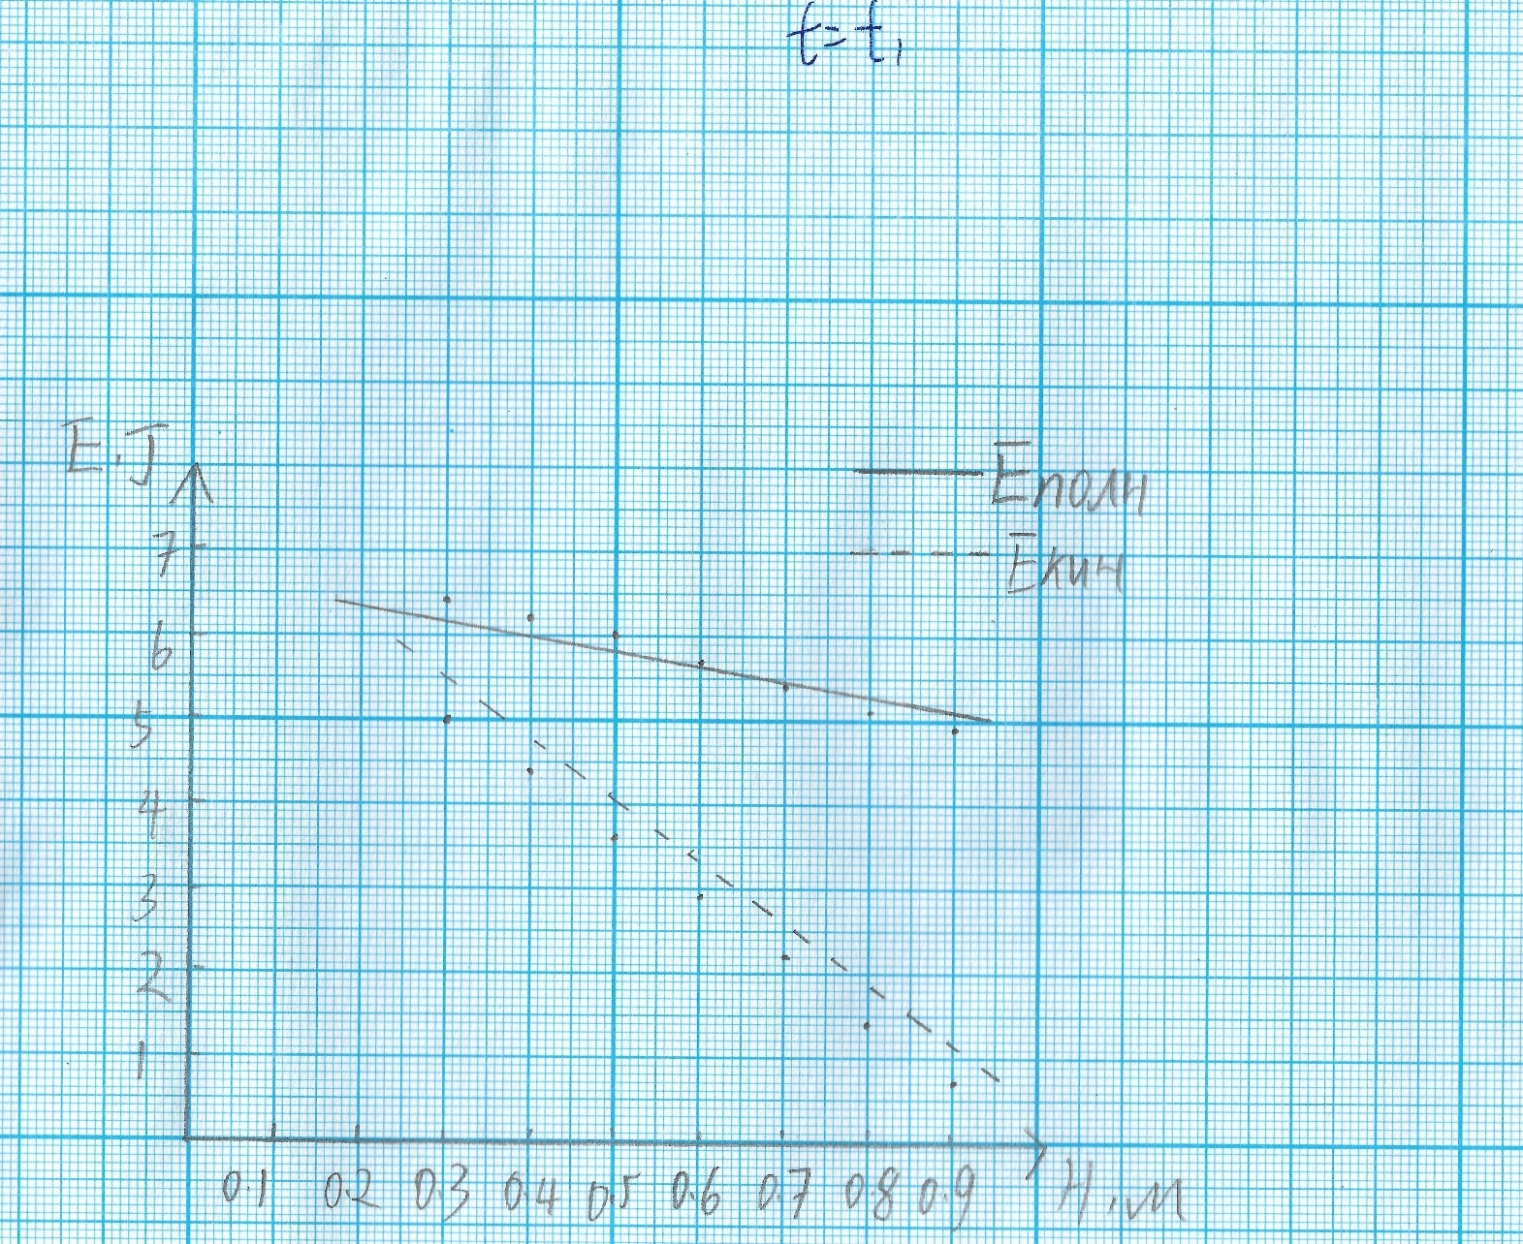 t=t₁
E.J
Eполн
Eкин
7
6
5
4
3
2
1
0.1 0.2 0.3 0.4 0.5 0.6 0.7 0.8 0.9 H,м